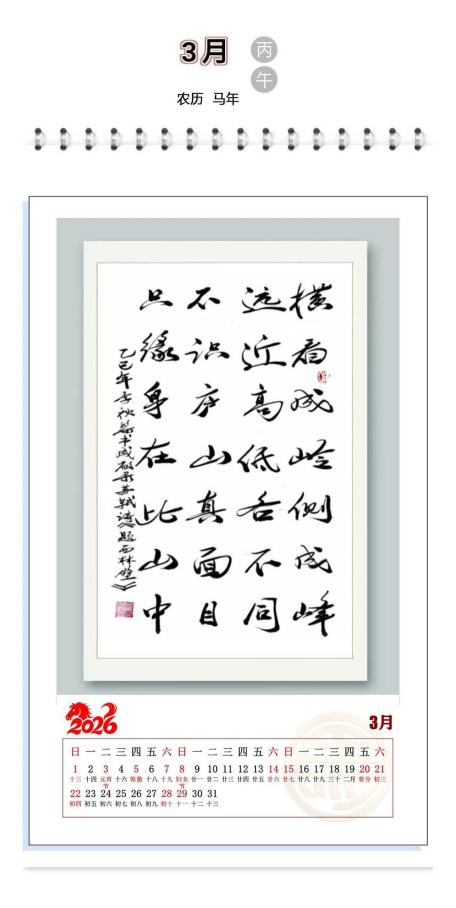 3月
丙午
农历 马年
横看成岭侧成峰
远近高低各不同
不识庐山真面目
只缘身在此山中
乙巳年李秋书苏轼诗《题西林壁》
2026
3月
日 一 二 三 四 五 六 日 一 二 三 四 五 六 日 一 二 三 四 五 六
1 2 3 4 5 6 7 8 9 10 11 12 13 14 15 16 17 18 19 20 21
十三 十四 元宵节 十六 惊蛰 十八 十九 妇女节 廿一 廿二 廿三 廿四 廿五 廿六 廿七 廿八 廿九 三十 二月 春分 初三
22 23 24 25 26 27 28 29 30 31
初四 初五 初六 初七 初八 初九 初十 十一 十二 十三